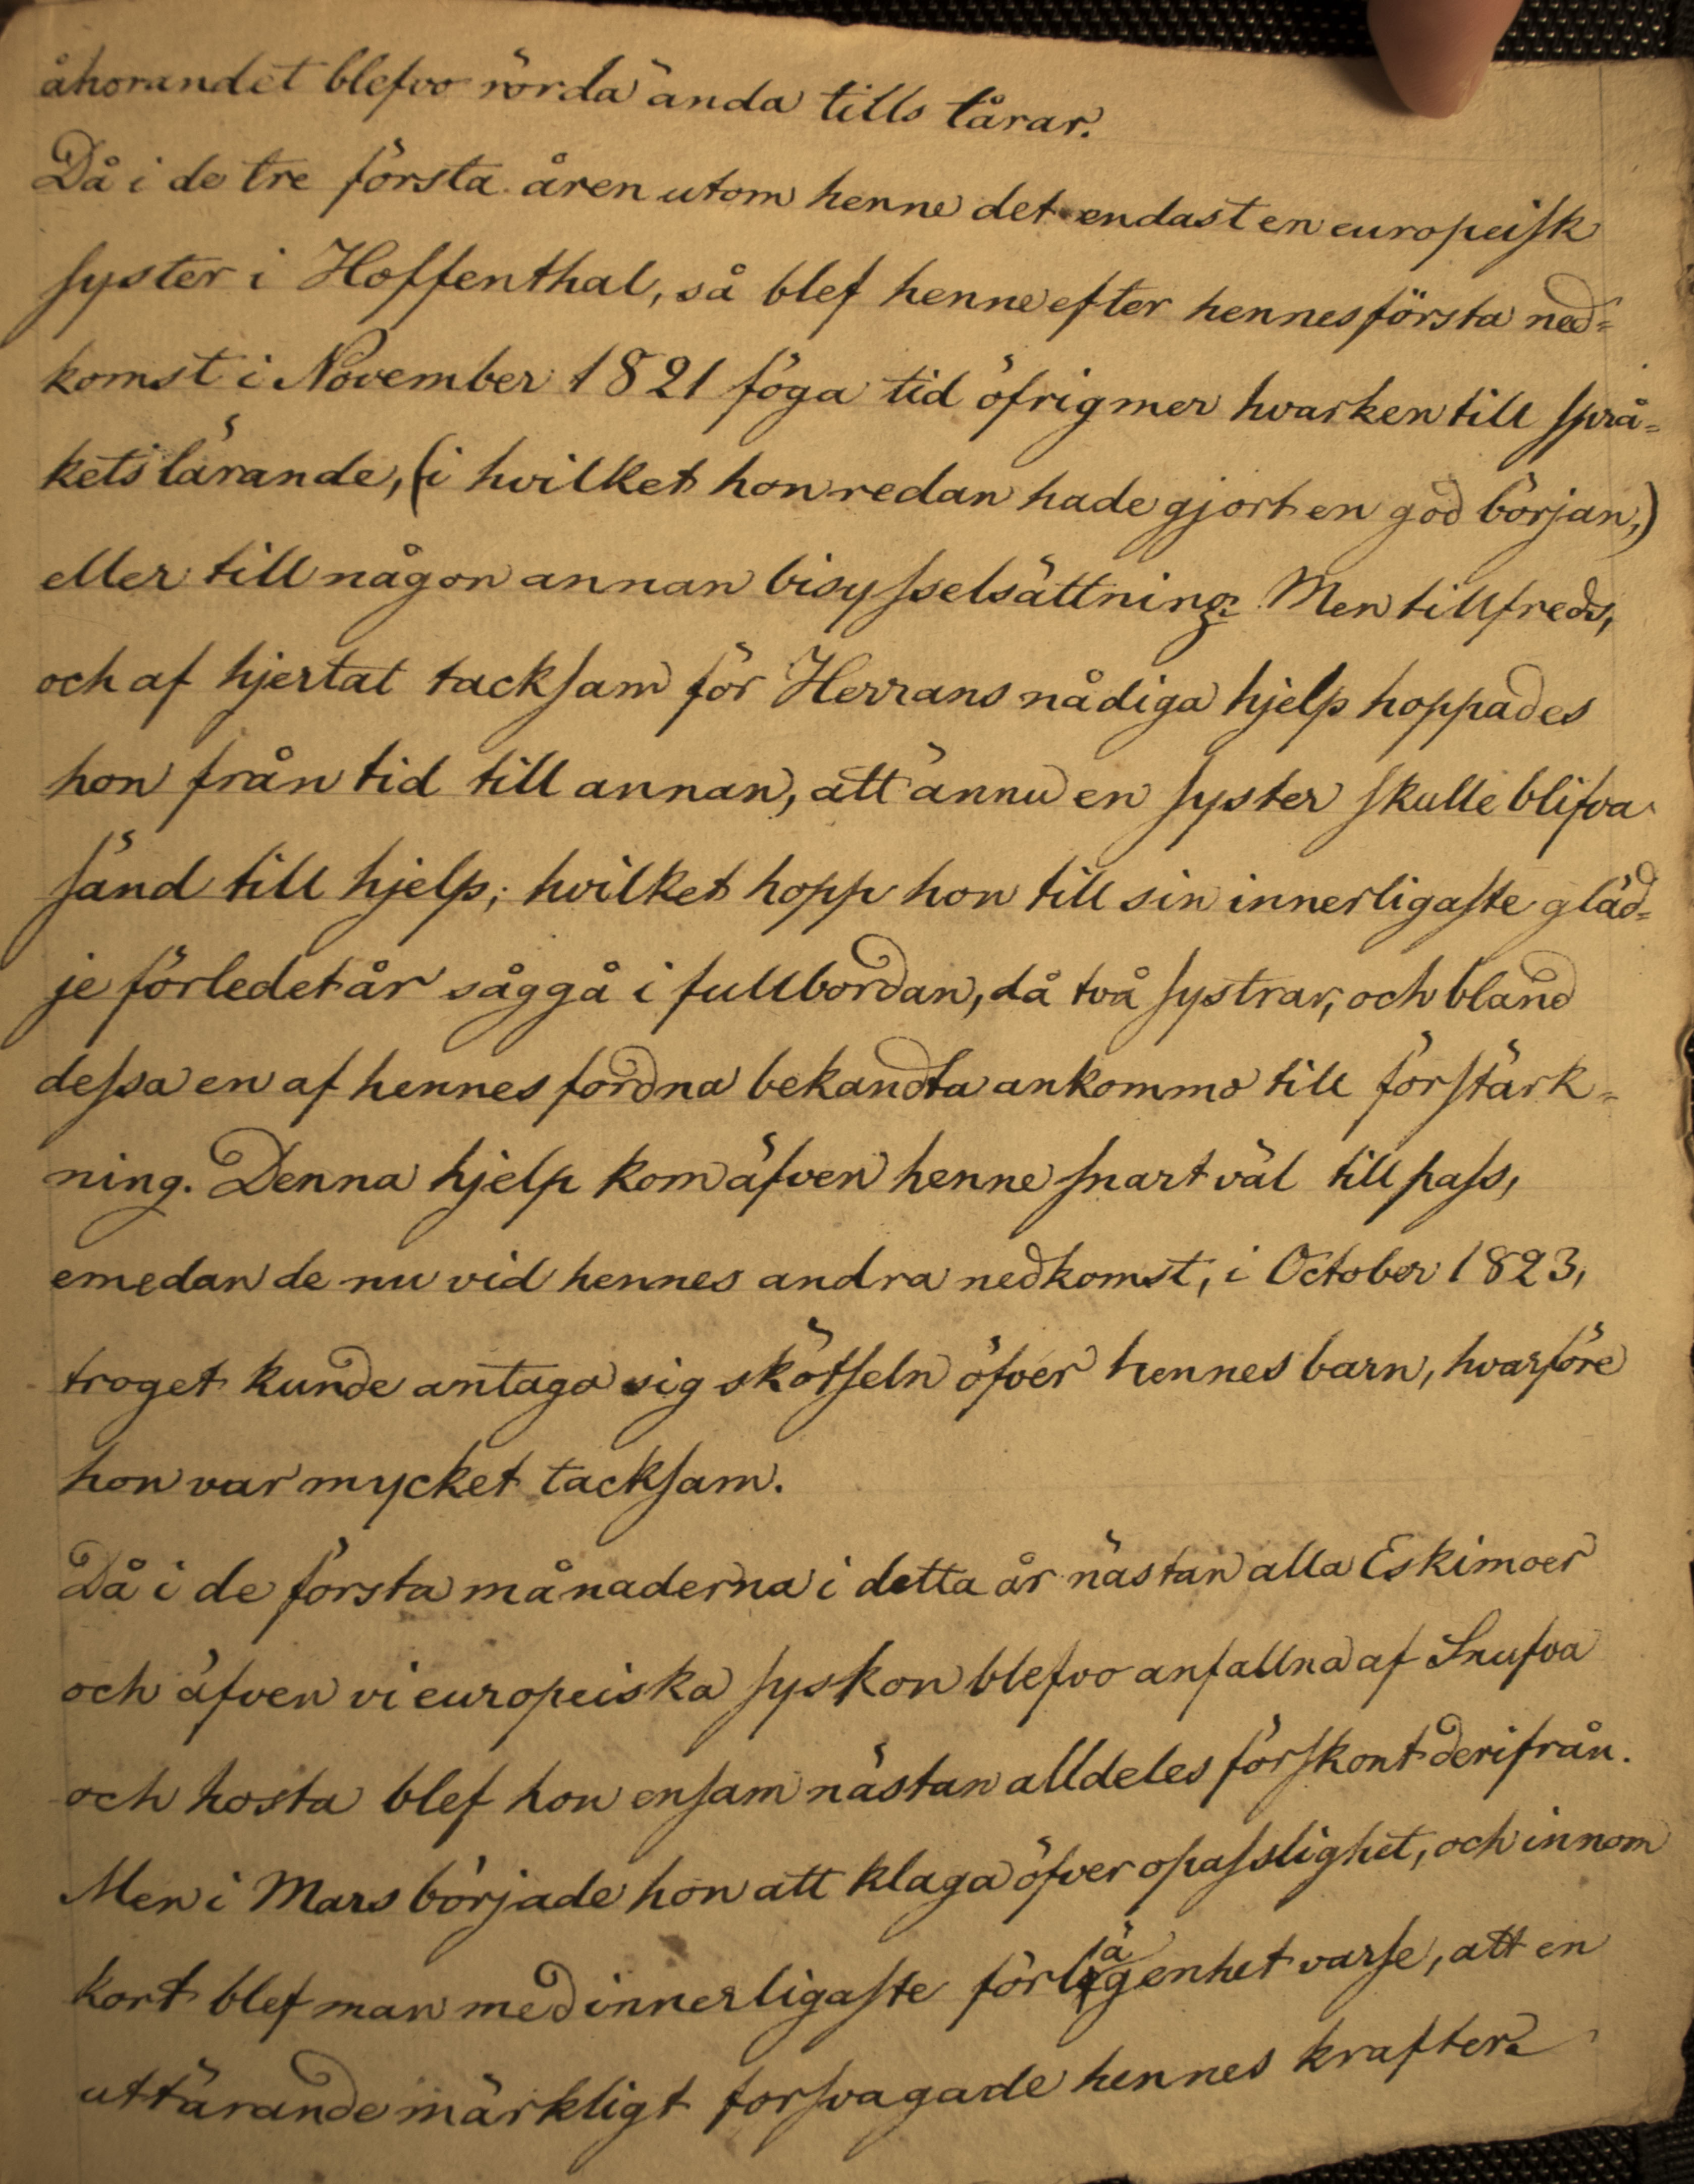 åhörandet blefvo rörda ända tills tårar.
Då i de tre första åren utom henne det endast en europeisk
syster i Hoffenthal, så blef henne efter hennes första ned=
komst i November 1821 föga tid öfrig mer hvarken till språ=
kets lärande, (i hvilket hon redan hade gjort en god början,)
eller till någon annan bisysselsättning. Men tillfreds,
och af hjertat tacksam för Herrans nådiga hjelp hoppades
hon från tid till annan, att ännu en syster skulle blifva
sänd till hjelp; hvilket hopp hon till sin innerligaste gläd=
je förledet år såg gå i fullbordan, då två systrar, och bland
dessa en af hennes fordna bekandta ankommo till förstärk=
ning. Denna hjelp kom äfven henne snart väl till pass,
emedan de nu vid hennes andra nedkomst, i October 1823,
troget kunde antaga sig skötseln öfver hennes barn, hvarföre
hon var mycket tacksam.
Då i de första månaderna i detta år nästan alla Eskimoer
och äfven vi europeiska syskon blefvo anfallna af Snufva
och hosta blef hon ensam nästan alldeles förskont derifrån.
Men i Mars började hon att klaga öfver opasslighet, och innom
kort blef man med innerligaste förlägenhet varse, att en
uttärande märkligt försvagade hennes krafter.